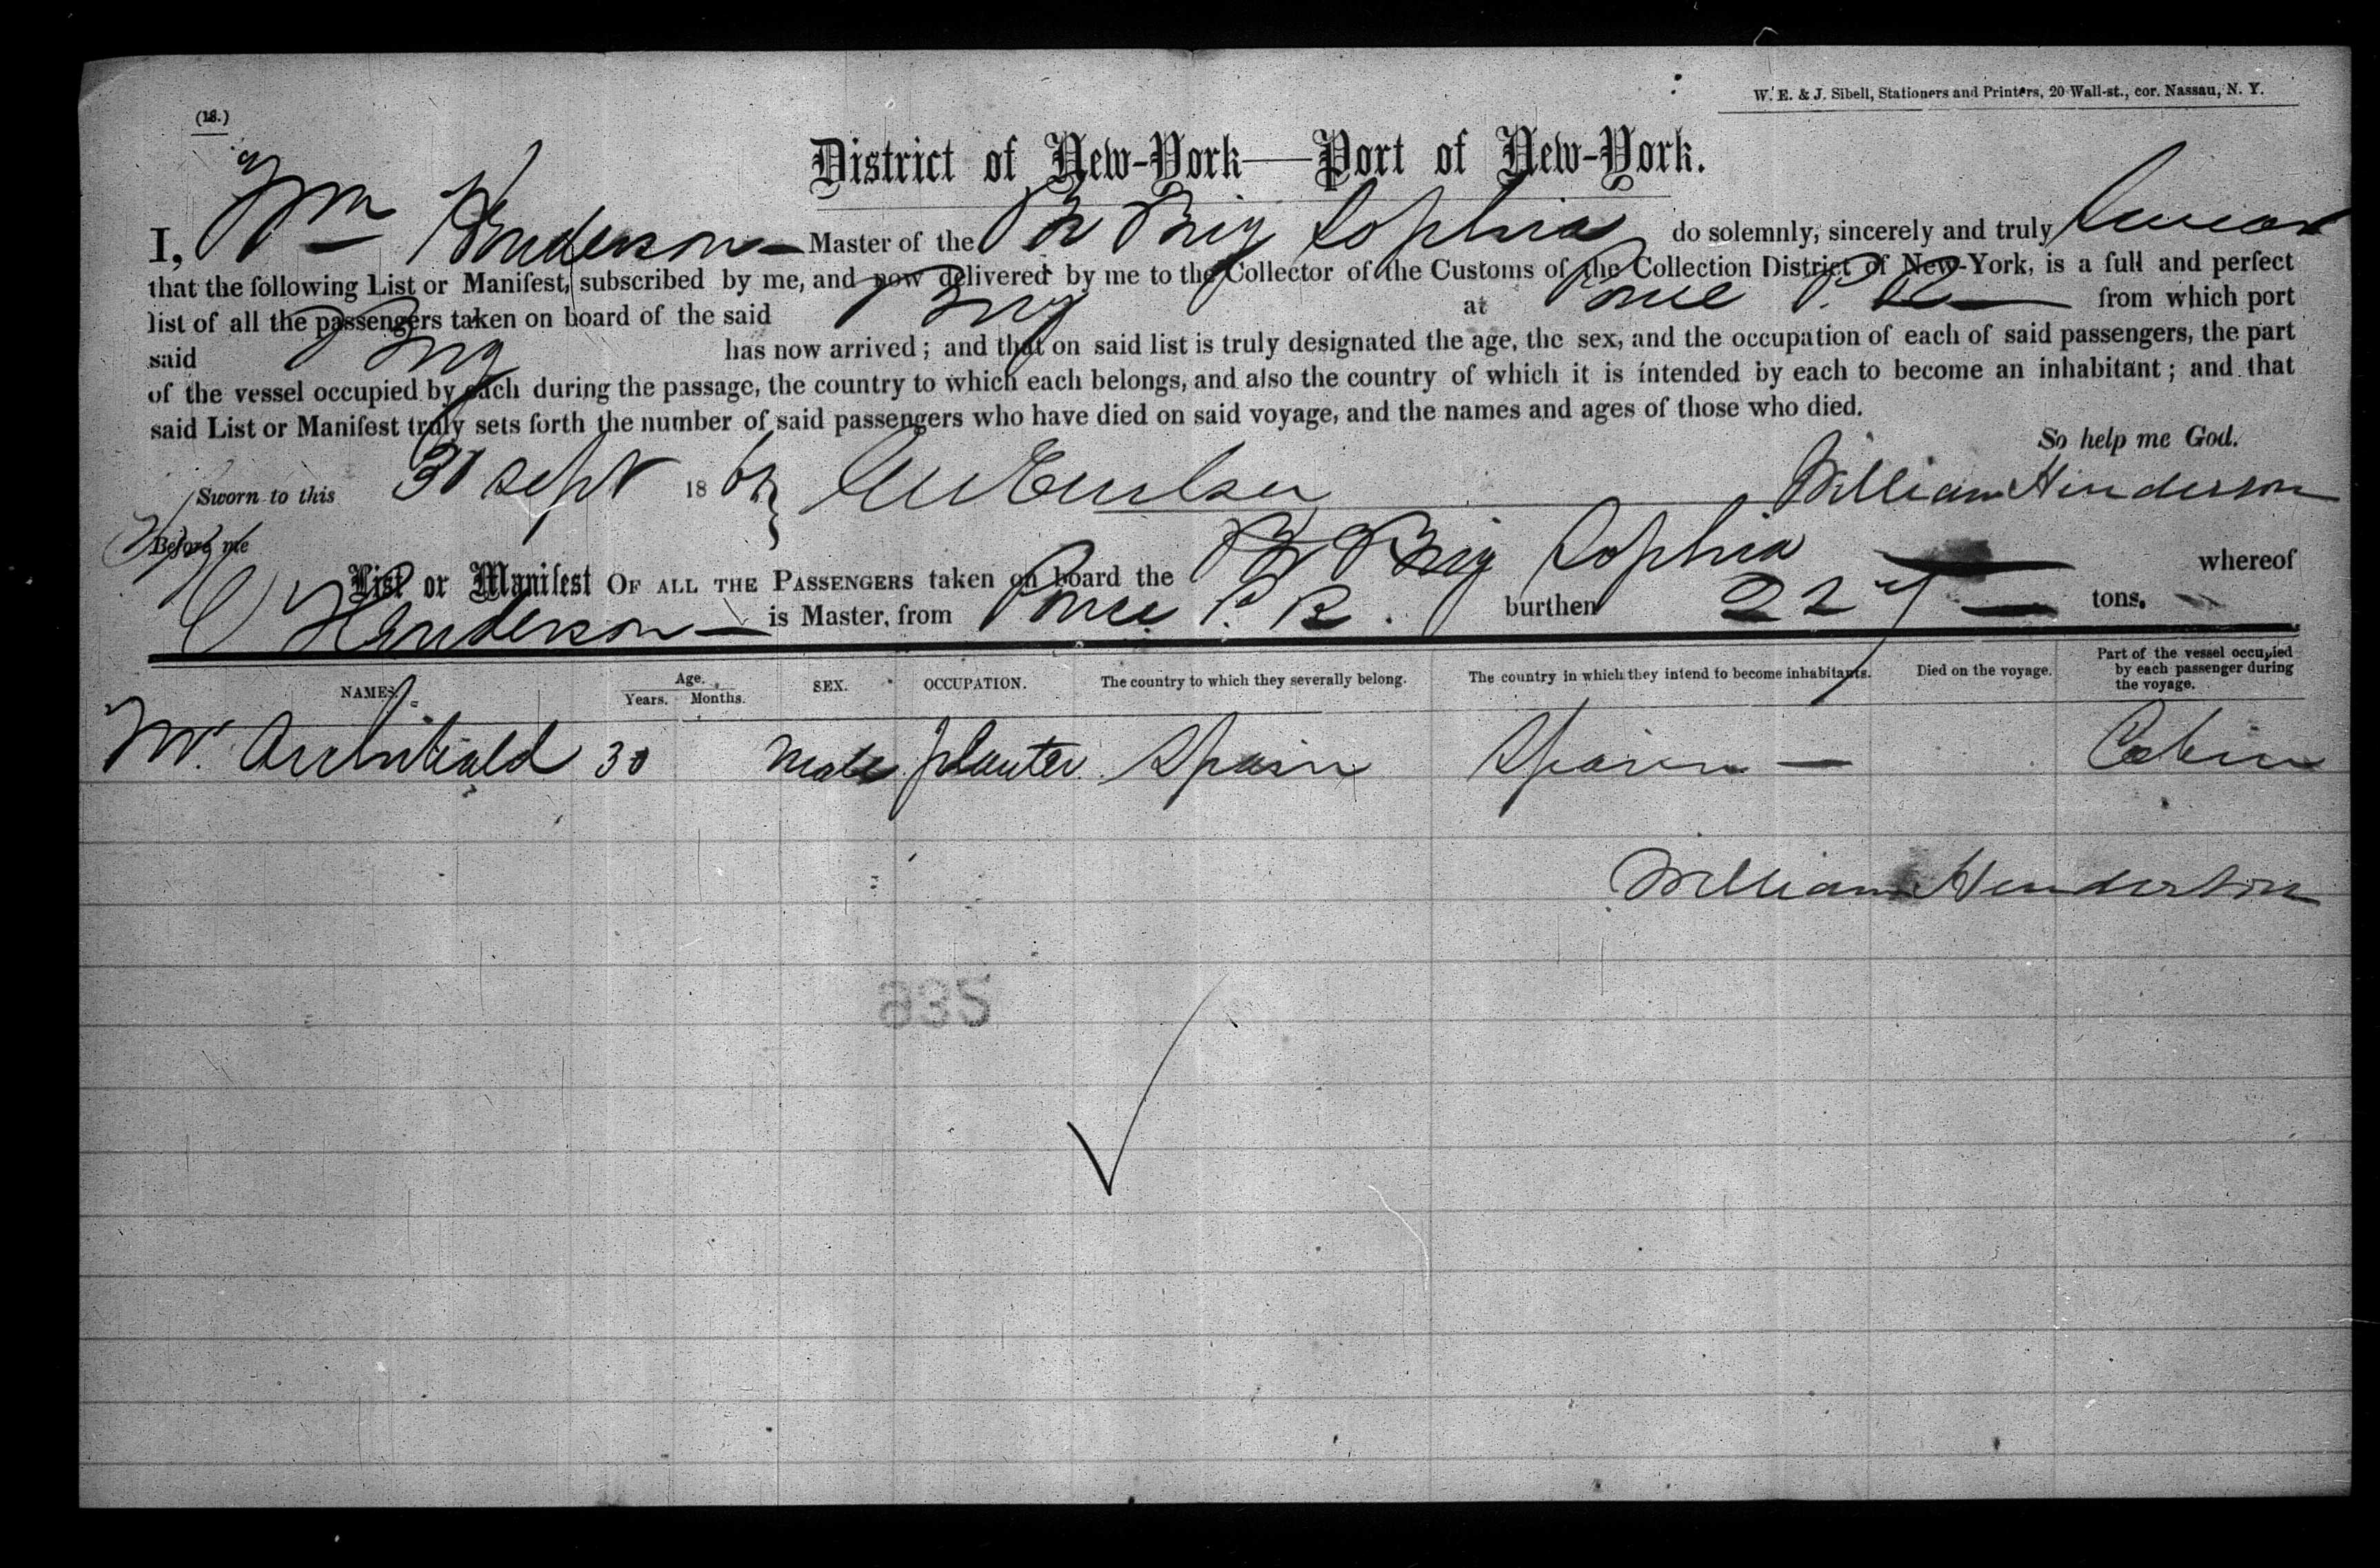 W. E. & J. Sibell, Stationers and Printers, 20 Wall-st., cor. Nassau, N. Y.
(18.)
District of New-York—Port of New-York.
I, Wm Henderson — Master of the Br Brig Sophia do solemnly, sincerely and truly swear
that the following List or Manifest, subscribed by me, and now delivered by me to the Collector of the Customs of the Collection District of New-York, is a full and perfect
list of all the passengers taken on board of the said Brig at Ponce P. R — from which port
said Brig has now arrived; and that on said list is truly designated the age, the sex, and the occupation of each of said passengers, the part
of the vessel occupied by each during the passage, the country to which each belongs, and also the country of which it is intended by each to become an inhabitant; and that
said List or Manifest truly sets forth the number of said passengers who have died on said voyage, and the names and ages of those who died.
So help me God.
Sworn to this 30 Sept 186 William Henderson
Before me
List or Manifest OF ALL THE PASSENGERS taken on board the Br Brig Sophia — whereof
Henderson — is Master, from Ponce P. R. burthen 227 — tons.
NAMES. Age. Years. Months. SEX. OCCUPATION. The country to which they severally belong. The country in which they intend to become inhabitants. Died on the voyage. Part of the vessel occupied by each passenger during the voyage.
Mr. Archibald 30 Male planter Spain Spain — Cabin
William Henderson